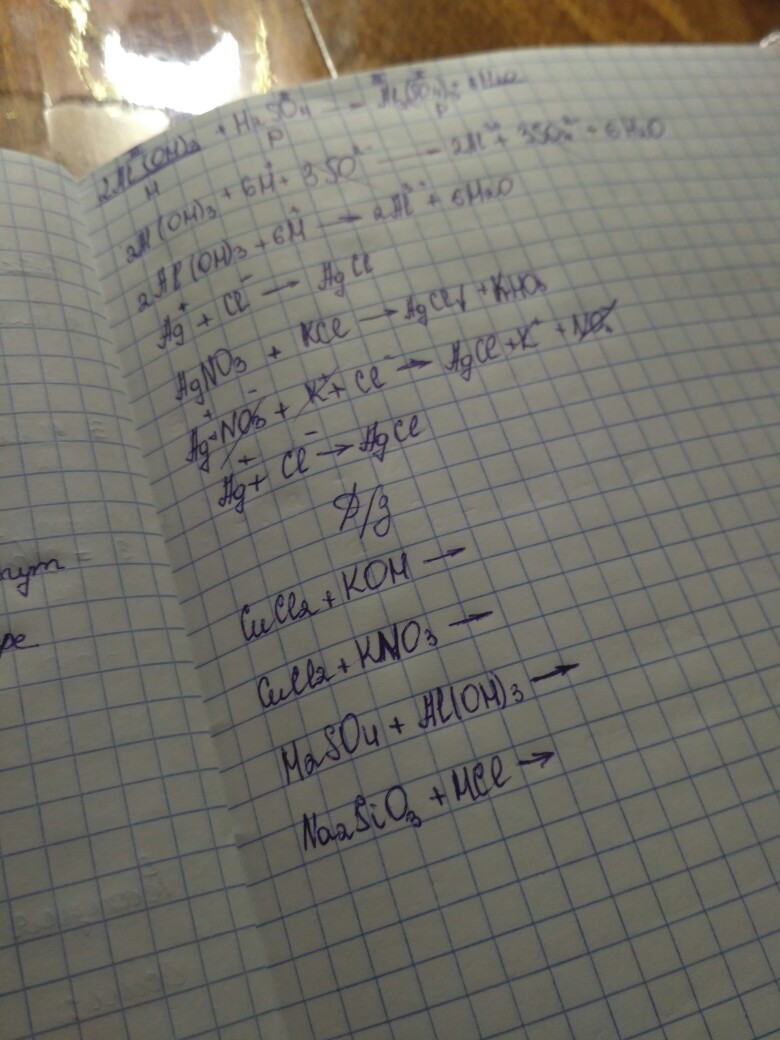 2Al(OH)3 + H2SO4 — Al2(SO4)3 + H2O
н р р
2Al(OH)3 + 6H+ + 3SO2- — 2Al3+ + 3SO42- + 6H2O
2Al(OH)3 + 6H+ → 2Al3+ + 6H2O
Ag+ + Cl- → AgCl
AgNO3 + KCl → AgCl↓ + KNO3
Ag+ + NO3- + K+ + Cl- → AgCl + K+ + NO3-
Ag+ + Cl- → AgCl
Д/з
CuCl2 + KOH →
CuCl2 + KNO3 →
H2SO4 + Al(OH)3 →
Na2SiO3 + HCl →